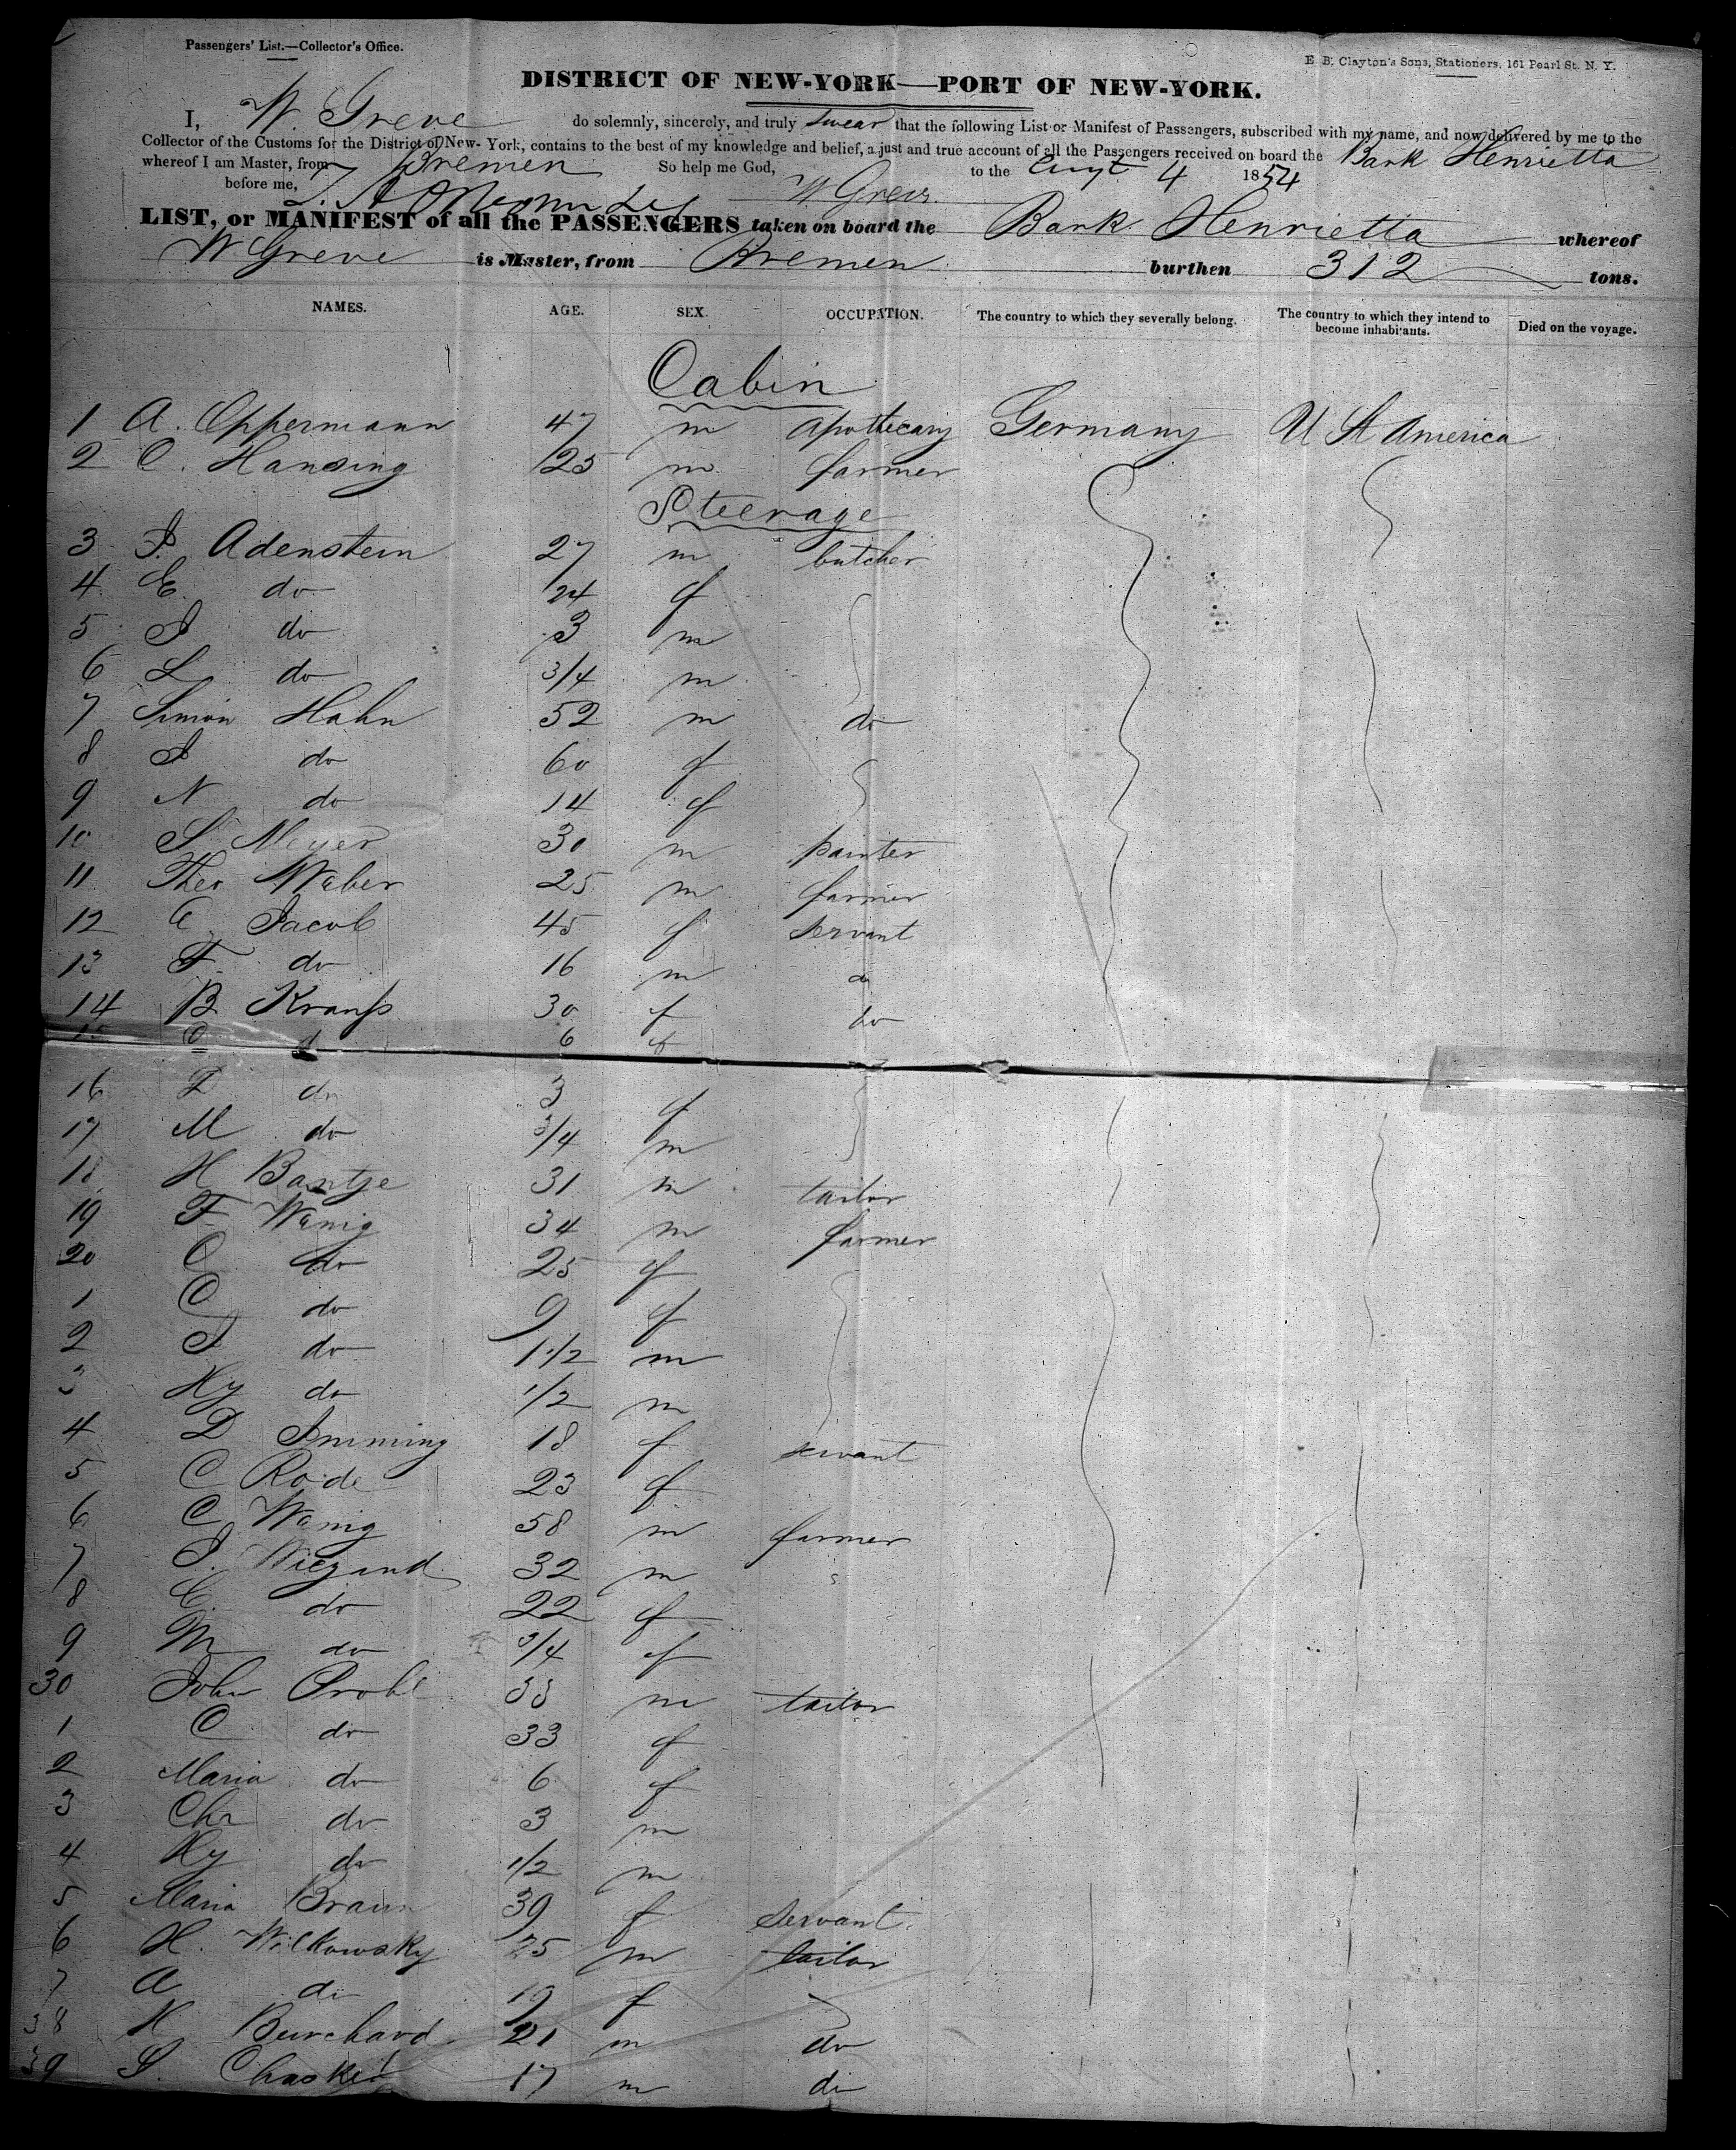 Passengers' List.—Collector's Office.
E. B. Clayton's Sons, Stationers, 161 Pearl St. N. Y.
DISTRICT OF NEW-YORK—PORT OF NEW-YORK.
I, W. Greve do solemnly, sincerely, and truly swear that the following List or Manifest of Passengers, subscribed with my name, and now delivered by me to the
Collector of the Customs for the District of New-York, contains to the best of my knowledge and belief, a just and true account of all the Passengers received on board the Bark Henrietta
whereof I am Master, from Bremen So help me God, to the 4 1854
before me, W Greve
LIST, or MANIFEST of all the PASSENGERS taken on board the Bark Henrietta whereof
W Greve is Master, from Bremen burthen 312 tons.
NAMES. AGE. SEX. OCCUPATION. The country to which they severally belong. The country to which they intend to become inhabitants. Died on the voyage.
Cabin
1 A. Oppermann 47 m apothecary Germany U St America
2 C. Hansing 25 m farmer
Steerage
3 J. Adenstein 27 m butcher
4 E. do 24 f
5 J do 3 m
6 L do 3/4 m
7 Simon Hahn 52 m do
8 J do 60 f
9 N do 14 f
10 S. Meyer 30 m painter
11 Theo Weber 25 m farmer
12 C Jacob 45 f servant
13 F. do 16 m do
14 B. Kranss 30 f do
15 C d 6 f
16 do 3 f
17 M do 3/4 m
18 H Bantje 31 m tailor
19 F Wanig 34 m farmer
20 C do 25 f
1 C do 9 f
2 J do 1 1/2 m
3 Hy do 1/2 m
4 D Imming 18 f servant
5 C Rode 23 f
6 C Wanig 58 m farmer
7 J. Wiegand 32 m
8 C. do 22 f
9 M do 3/4 f
30 John Probl 33 m tailor
1 C do 33 f
2 Maria do 6 f
3 Chr do 3 m
4 Hy do 1/2 m
5 Maria Braun 39 f servant.
6 H. Wilkowsky 25 m tailor
7 A do 19 f
38 H Burchard 21 m do
39 S. 17 m do